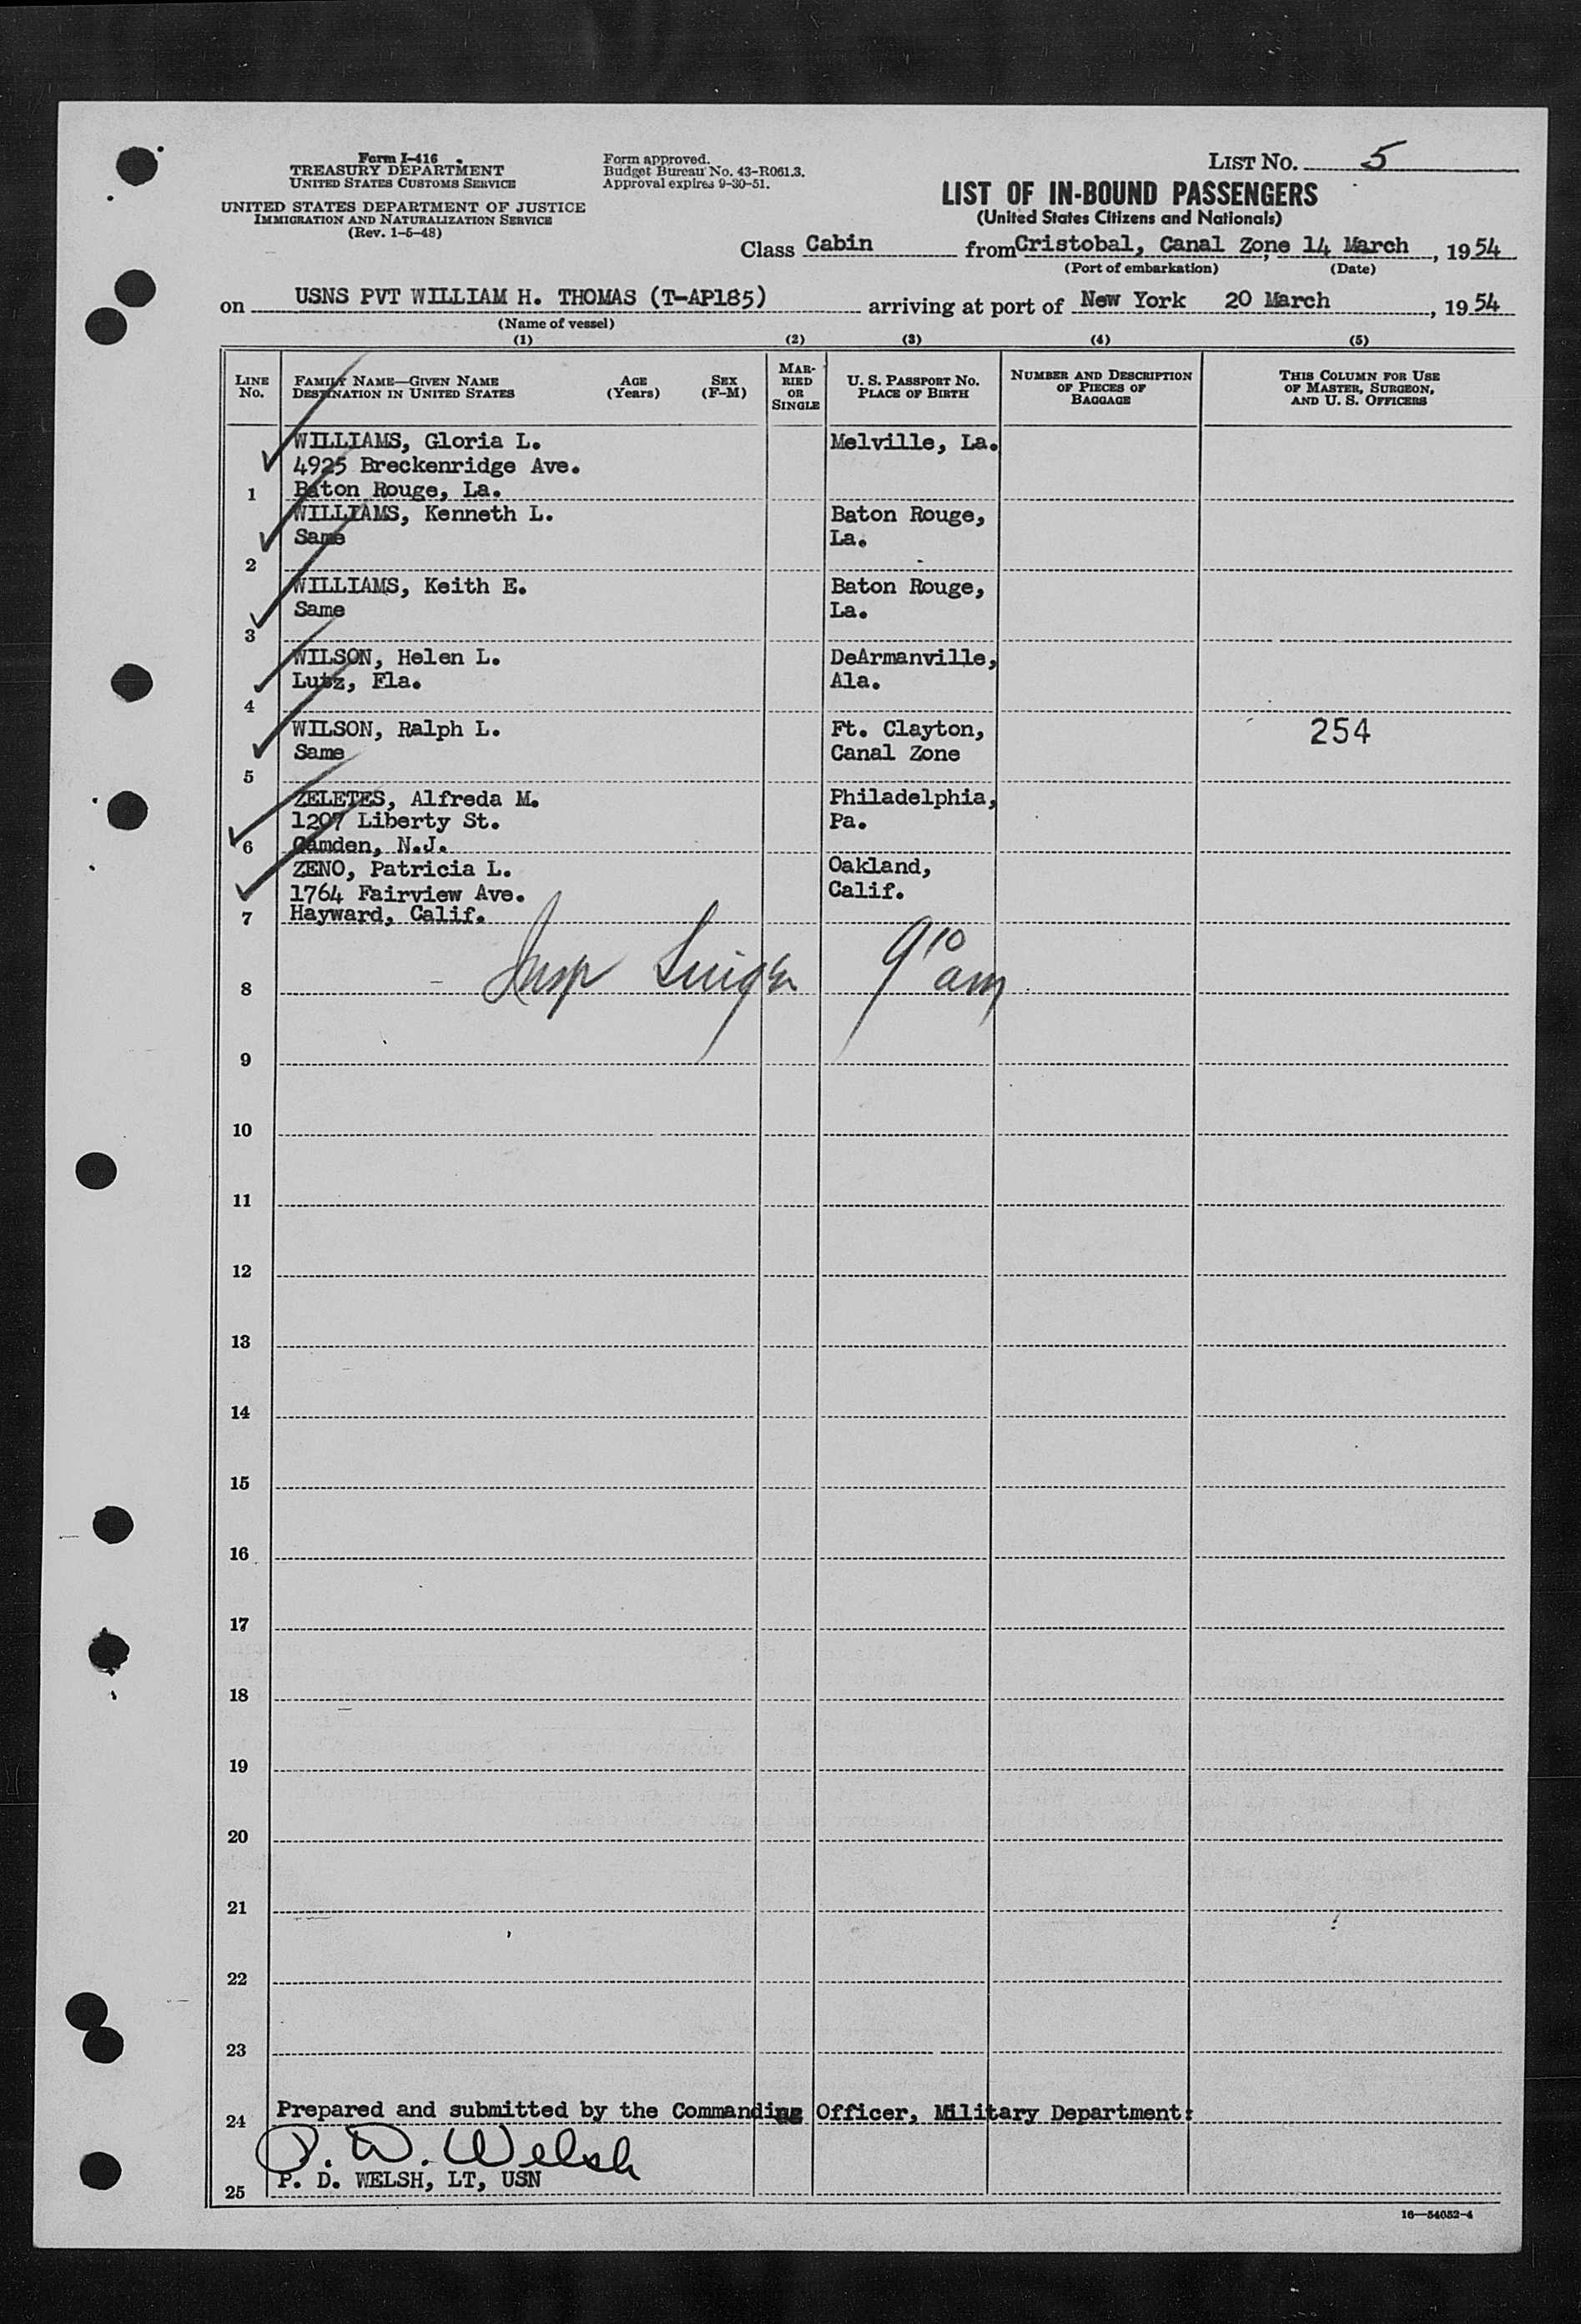 Form I-416
TREASURY DEPARTMENT
UNITED STATES CUSTOMS SERVICE
UNITED STATES DEPARTMENT OF JUSTICE
IMMIGRATION AND NATURALIZATION SERVICE
(Rev. 1-5-48)
Form approved.
Budget Bureau No. 43-R061.3.
Approval expires 9-30-51.
LIST NO. 5
LIST OF IN-BOUND PASSENGERS
(United States Citizens and Nationals)
Class Cabin from Cristobal, Canal Zone 14 March, 1954
(Port of embarkation) (Date)
on USNS PVT WILLIAM H. THOMAS (T-AP185) arriving at port of New York 20 March, 1954
(Name of vessel)
(1) (2) (3) (4) (5)
LINE NO. FAMILY NAME—GIVEN NAME DESTINATION IN UNITED STATES AGE (Years) SEX (F-M) MARRIED OR SINGLE U. S. PASSPORT NO. PLACE OF BIRTH NUMBER AND DESCRIPTION OF PIECES OF BAGGAGE THIS COLUMN FOR USE OF MASTER, SURGEON, AND U. S. OFFICERS
WILLIAMS, Gloria L. Melville, La.
4925 Breckenridge Ave.
1 Baton Rouge, La.
WILLIAMS, Kenneth L. Baton Rouge,
Same La.
2
WILLIAMS, Keith E. Baton Rouge,
Same La.
3
WILSON, Helen L. DeArmanville,
Lutz, Fla. Ala.
4
WILSON, Ralph L. Ft. Clayton, 254
Same Canal Zone
5
ZELETES, Alfreda M. Philadelphia,
1207 Liberty St. Pa.
6 Camden, N.J.
ZENO, Patricia L. Oakland,
1764 Fairview Ave. Calif.
7 Hayward, Calif.
Insp 9 10 am
8
9
10
11
12
13
14
15
16
17
18
19
20
21
22
23
24 Prepared and submitted by the Commanding Officer, Military Department:
P. D. Welsh
P. D. WELSH, LT, USN
25
16—54052-4